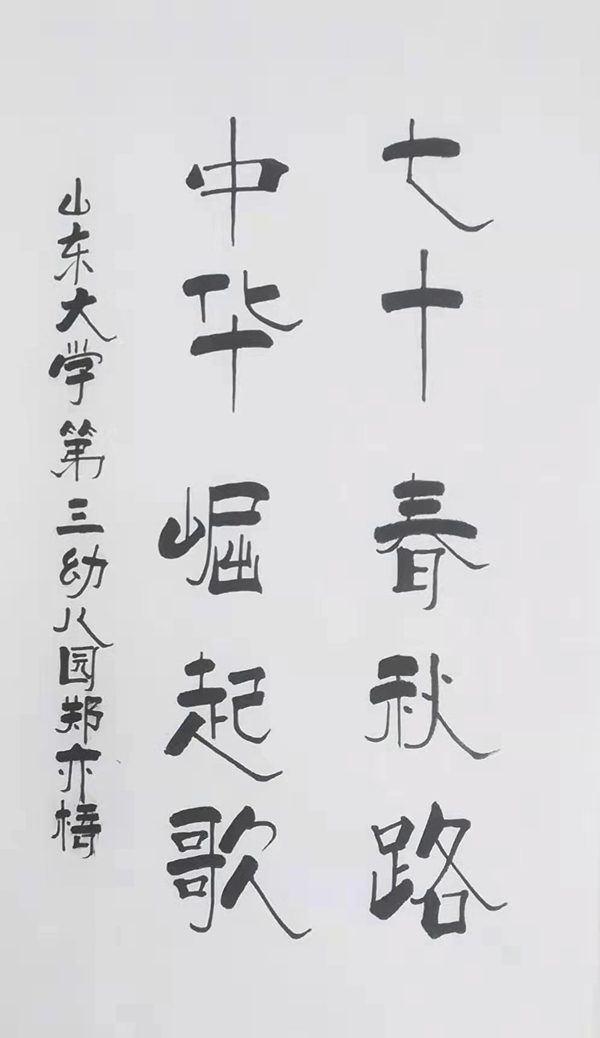 七十春秋路
中华崛起歌
山东大学第三幼儿园郑亦梧